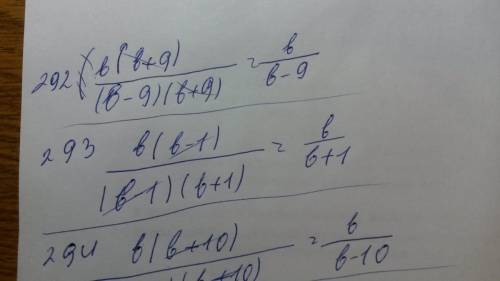 292 b(b+9) / (b-9)(b+9) = b / b-9
293 b(b-1) / (b-1)(b+1) = b / b+1
294 b(b+10) / (b+10) = b / b-10